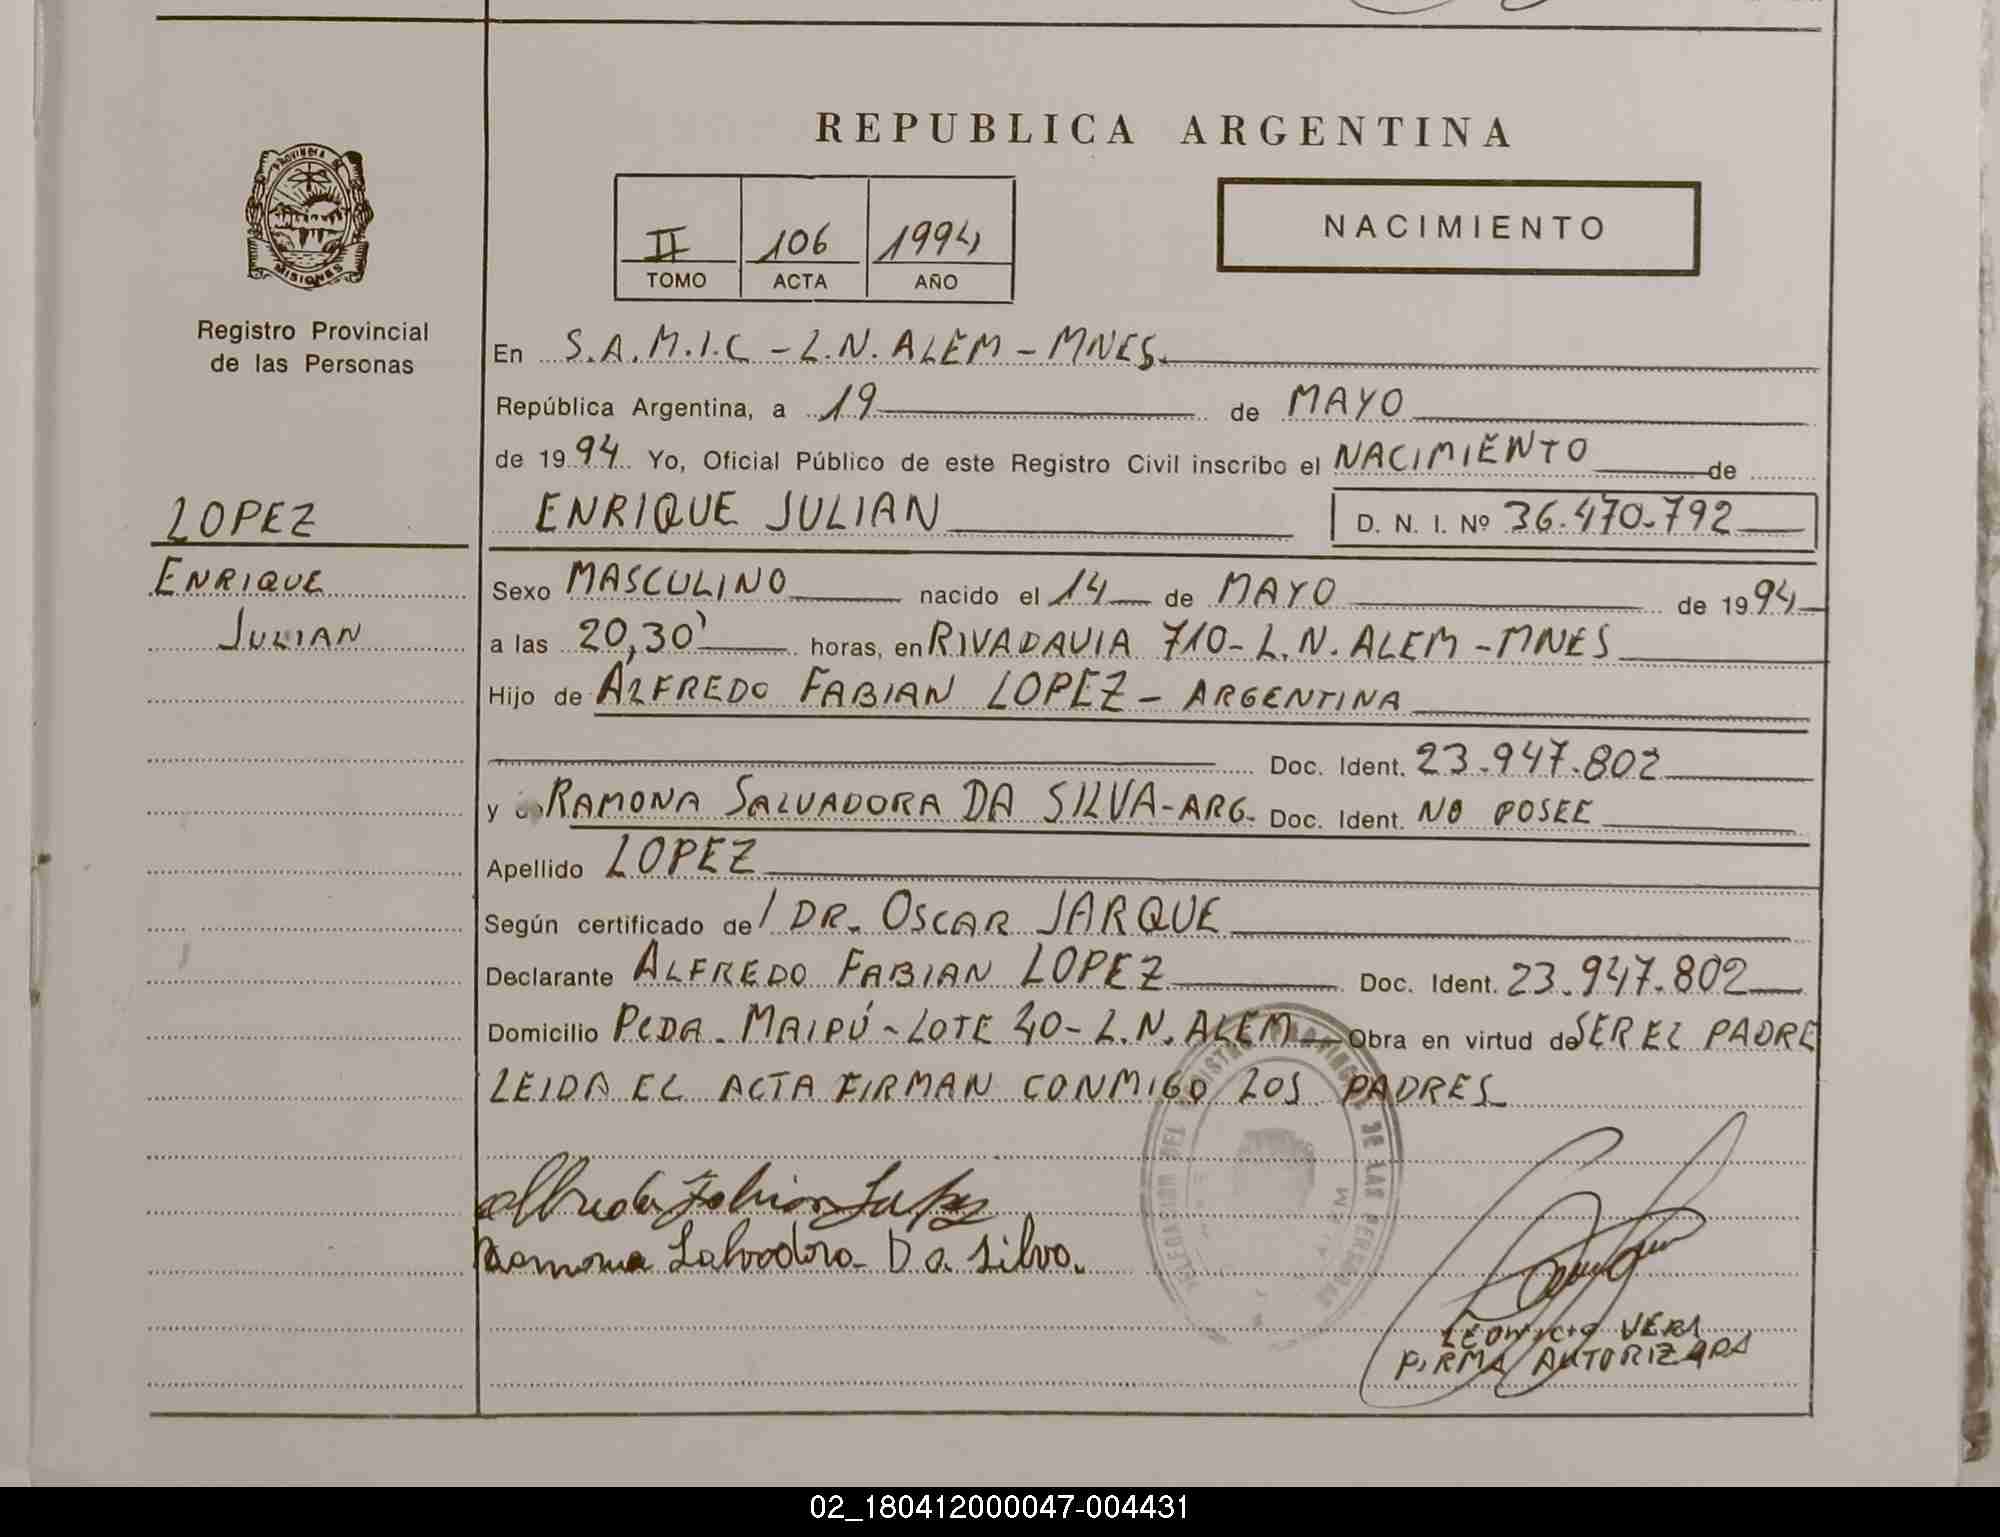 REPUBLICA ARGENTINA
PROVINCIA DE
MISIONES
Registro Provincial
de las Personas
II 106 1994
TOMO ACTA AÑO
NACIMIENTO
En S.A.M.I.C - L.N. ALEM - MNES.
República Argentina, a 19 de MAYO
de 1994 Yo, Oficial Público de este Registro Civil inscribo el NACIMIENTO de
LOPEZ
ENRIQUE JULIAN D. N. I. Nº 36.470.792
ENRIQUE
JULIAN
Sexo MASCULINO nacido el 14 de MAYO de 1994
a las 20,30' horas, en RIVADAVIA 710 - L.N. ALEM - MNES
Hijo de ALFREDO FABIAN LOPEZ - ARGENTINA
Doc. Ident. 23.947.802
y RAMONA SALVADORA DA SILVA - ARG. Doc. Ident. NO POSEE
Apellido LOPEZ
Según certificado de DR. OSCAR JARQUE
Declarante ALFREDO FABIAN LOPEZ Doc. Ident. 23.947.802
Domicilio PCDA. MAIPÚ - LOTE 40 - L.N. ALEM Obra en virtud de SER EL PADRE
LEIDA EL ACTA FIRMAN CONMIGO LOS PADRES
Alfredo Fabian Lopez
Ramona Salvadora Da Silva.
DE LAS PERSONAS
VERA
FIRMA AUTORIZADA
02_180412000047-004431